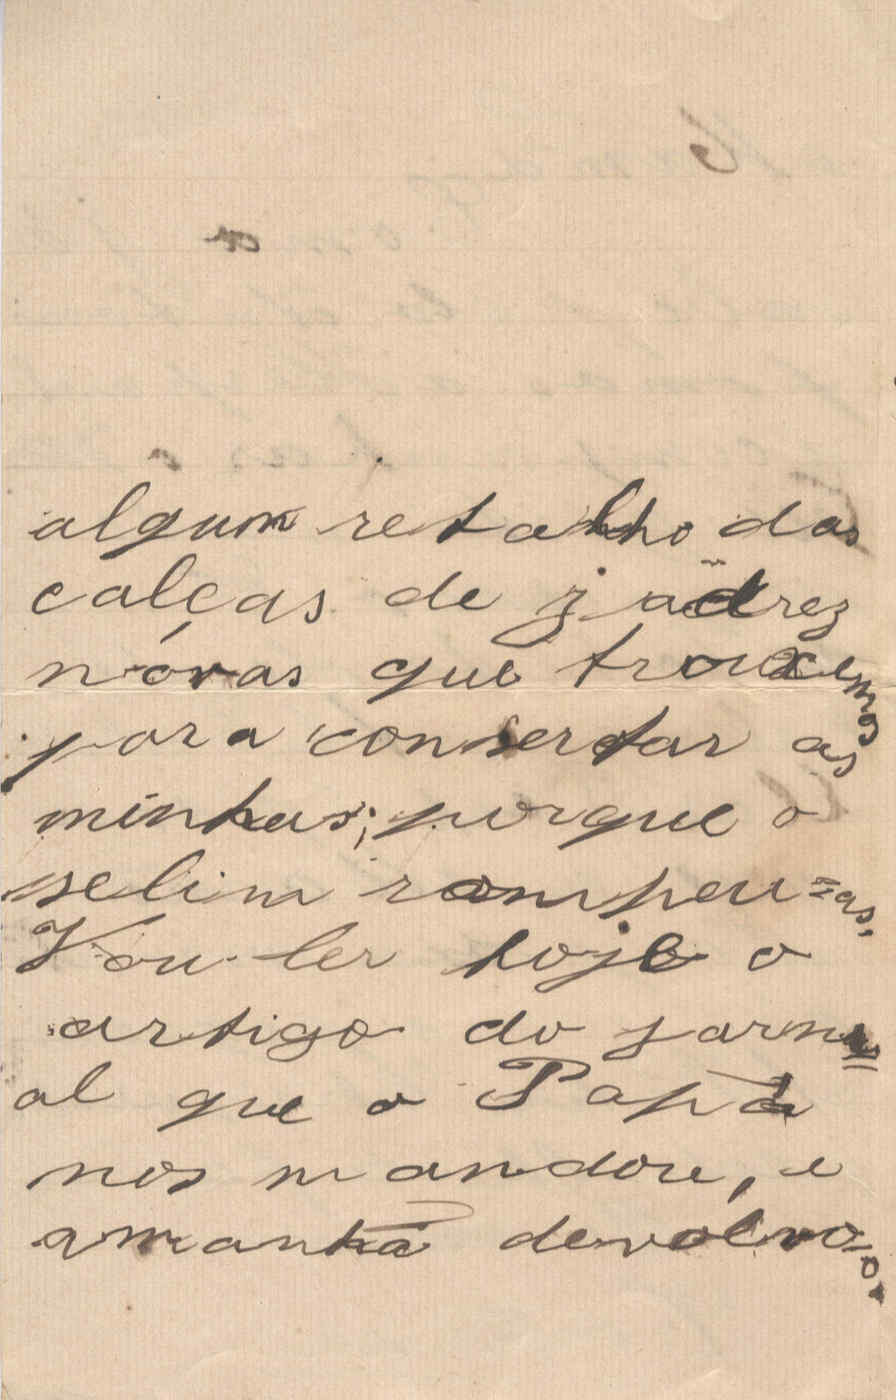 algum retalho das
calças de jadrez
nóvas que trouxemos
para consertar as
minhas; porque o
selim rompeu=as.
Vou ler hoje o
artigo do jorn=
al que o Papá
nos mandou, e
amanhã devolvo-o.